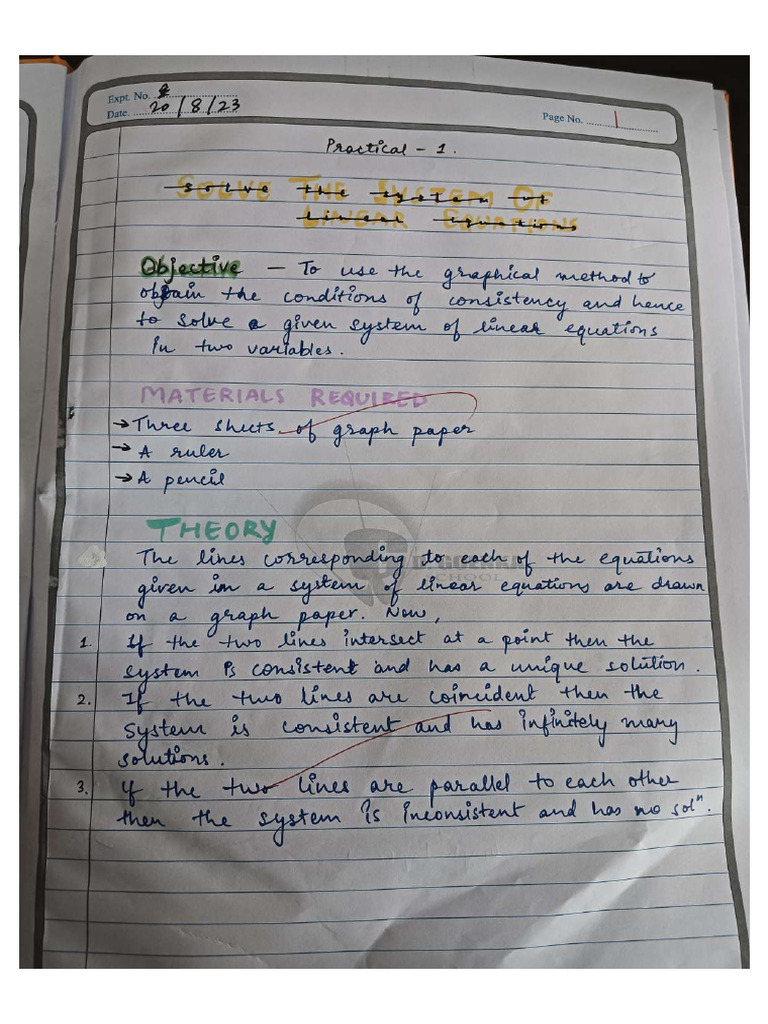 Expt. No. 2
Date. 20/8/23
Page No. 1
Practical - 1.
SOLVE THE SYSTEM OF
LINEAR EQUATIONS
Objective - To use the graphical method to
obtain the conditions of consistency and hence
to solve a given system of linear equations
in two variables.
MATERIALS REQUIRED
→ Three sheets of graph paper
→ A ruler
→ A pencil
THEORY
The lines corresponding to each of the equations
given in a system of linear equations are drawn
on a graph paper. Now,
1. If the two lines intersect at a point then the
system is consistent and has a unique solution.
2. If the two lines are coincident then the
system is consistent and has infinitely many
solutions.
3. If the two lines are parallel to each other
then the system is inconsistent and has no solⁿ.